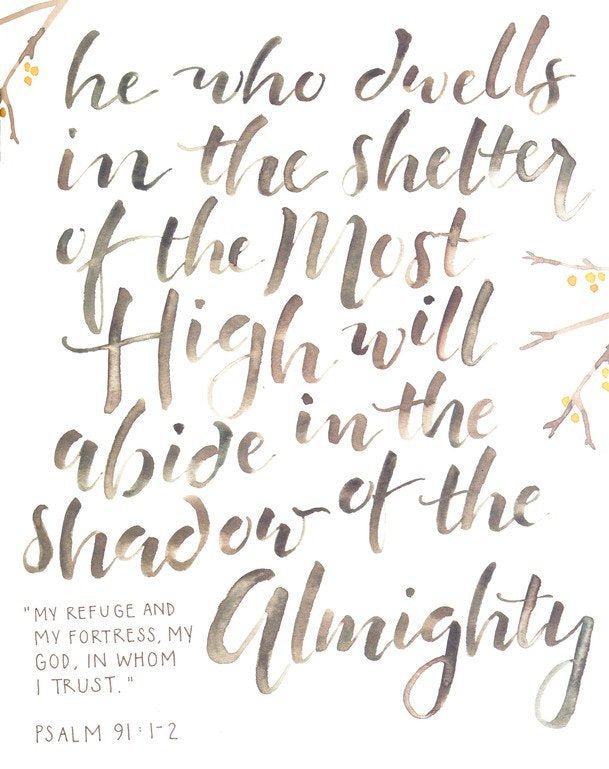 he who dwells
in the shelter
of the Most
High will
abide in the
shadow of the
Almighty
"MY REFUGE AND
MY FORTRESS, MY
GOD, IN WHOM
I TRUST."
PSALM 91:1-2